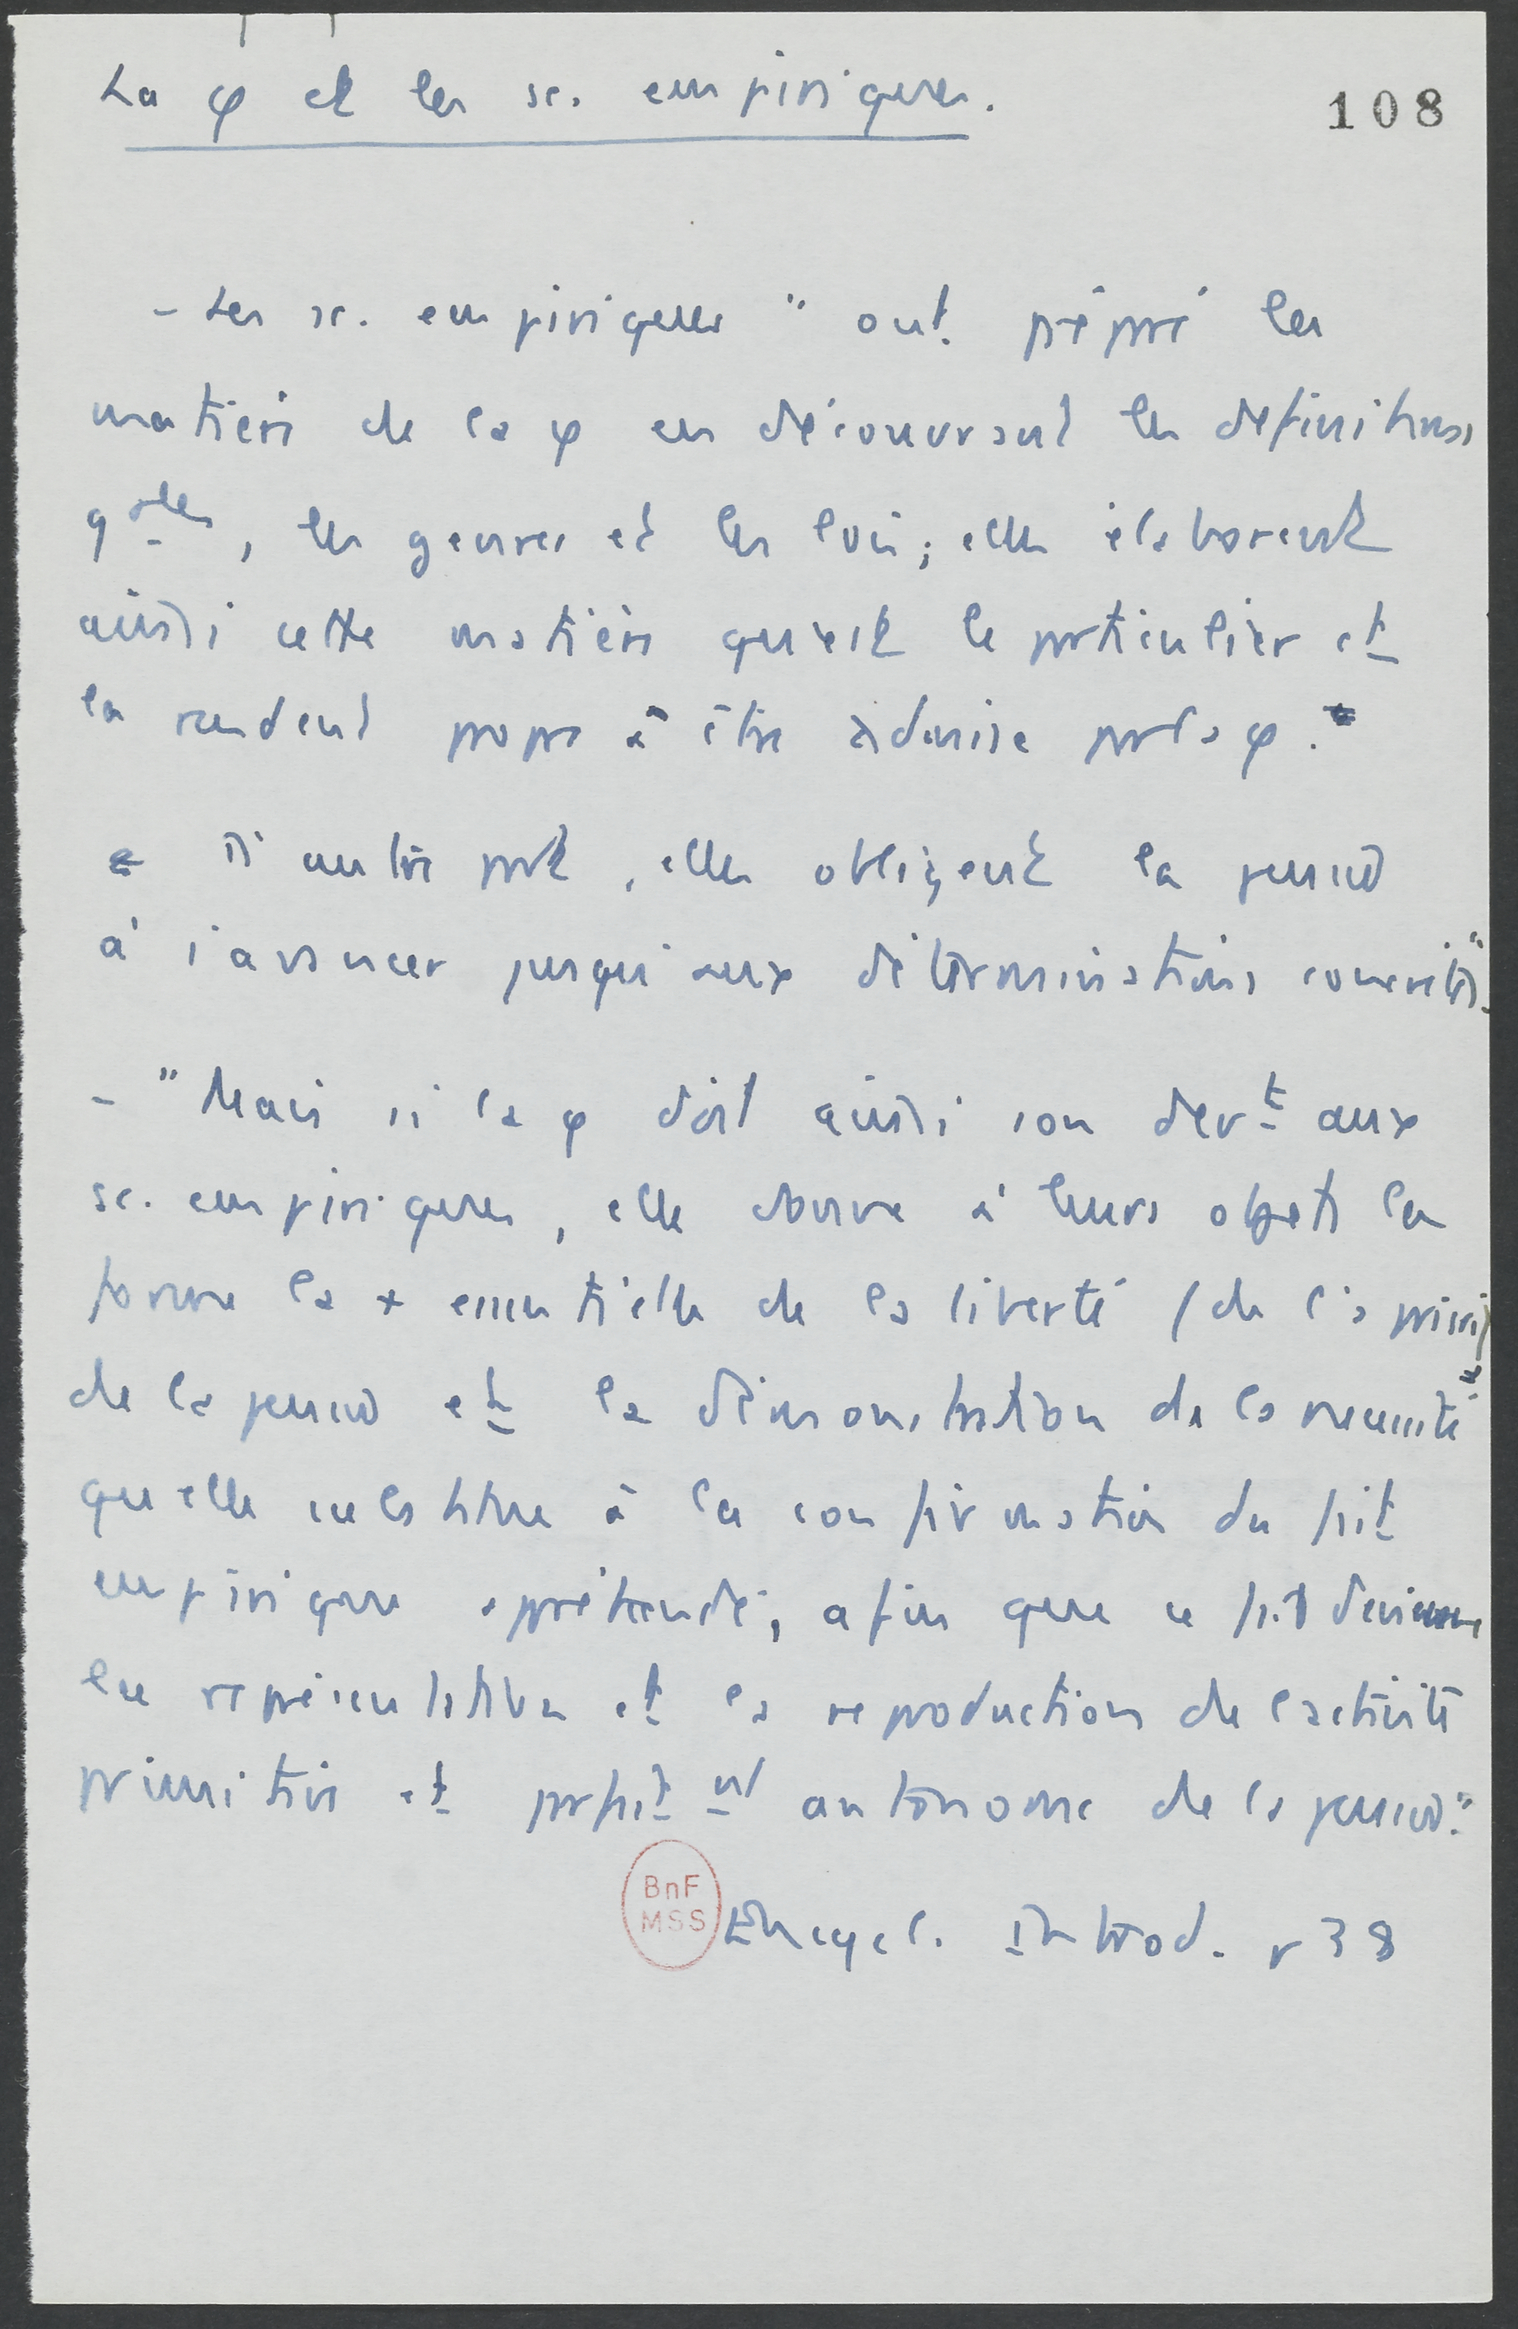 La φ et les sc. empiriques.
108
- Les sc. empiriques " ont préparé les
matières de la φ en découvrant les définitions
gales, les genres et les lois ; elles élaborent
ainsi cette matière qu'est le particulier et
la rendent propre à être admise par la φ.
D'autre part, elles obligent la pensée
à s'avancer jusqu'aux déterminations concrètes".
- " Mais si la φ doit ainsi son devt aux
sc. empiriques, elle donne à leurs objets la
forme la + essentielle de la liberté (de l'a priori)
de la pensée et la démonstration de la nécessité
qu'elle substitue à la confirmation du fait
empirique appréhendé, afin que ce fait devienne
la représentation et la reproduction de l'activité
primitive et parfaitnt autonome de la pensée."
BnF
MSS
Encycl. Introd. p 38